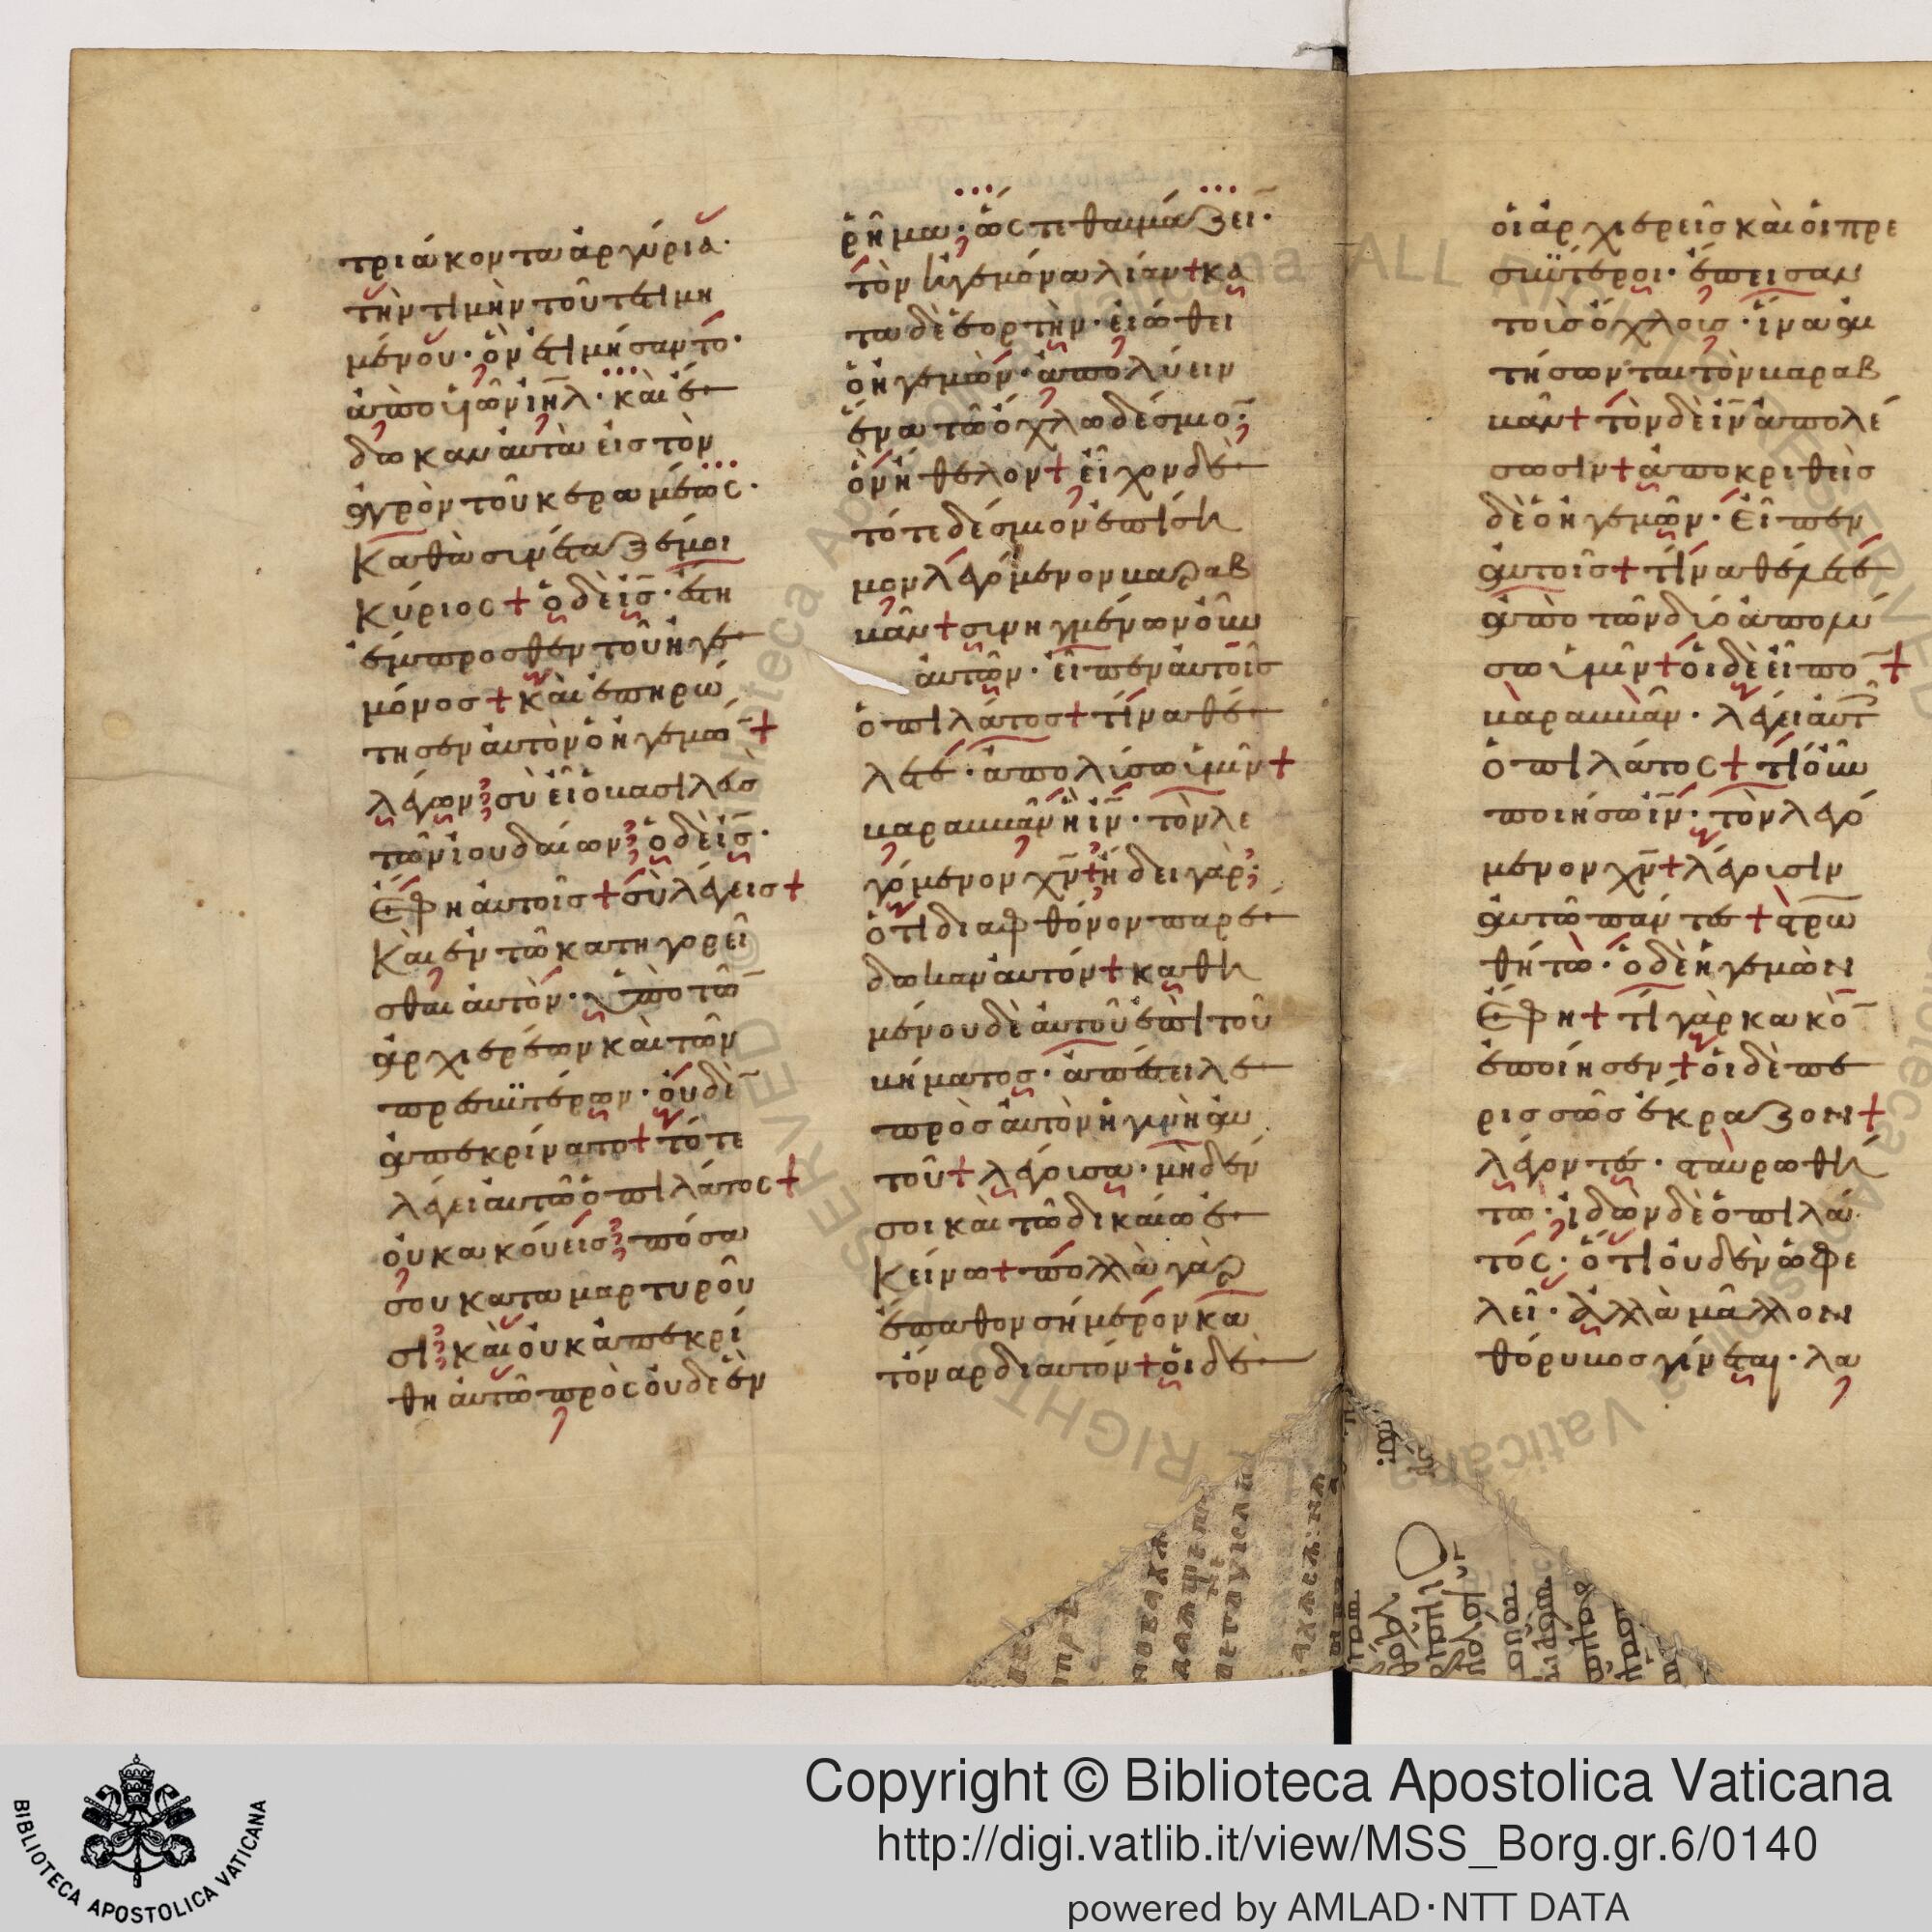 τριάκοντα ἀργύρια·
τὴν τιμὴν τοῦ τετιμη
μένου· ὃν ἐτιμήσαντο·
ἀπὸ υἱῶν ιηλ· καὶ ἔ
δωκαν αὐτὰ εἰς τὸν
ἀγρὸν τοῦ κεραμέως·
Καθὰ συνέταξέ μοι
κύριος + ὁ δὲ ις· ἔστη
ἔμπροσθεν τοῦ ἡγε
μόνος + καὶ ἐπηρώ
τησεν αὐτὸν ὁ ἡγεμω +
λέγων· σὺ εἶ ὁ βασιλεὺς
τῶν ἰουδαίων· ὁ δὲ ις·
Ἔφη αὐτοῖς + σὺ λέγεις +
Καὶ ἐν τῶ κατηγορεῖ
σθαι αὐτὸν· ὑπὸ τῶ
ἀρχιερέων καὶ τῶν
πρεσβϋτέρων· οὐδὲ
ἀπεκρίνατο + τότε
λέγει αὐτῶ ὁ πιλάτος +
οὐκ ἀκούεις· πόσα
σου καταμαρτυροῦ
σι· καὶ οὐκ ἀπεκρί
θη αὐτῶ πρὸς οὐδὲ ἓν
ῥῆμα· ὥστε θαυμάζει·
τὸν ἡγεμόνα λίαν + κα
τα δὲ ἑορτὴν· εἰώθει
ὁ ἡγεμὼν· ἀπολύειν
ἕνα τῶ ὄχλω δέσμιο·
ὃν ἤθελον + εἶχον δὲ
τότε δέσμιον ἐπίση
μον λεγόμενον βαραβ
βᾶν + συνηγμένων οὖν
αὐτῶν· εἶπεν αὐτοῖς
ὁ πιλάτος + τίνα θέ
λετε· ἀπολύσω ὑμῖν +
βαραββᾶν ἢ ιν· τὸν λε
γόμενον χν + ἤδει γὰρ·
ὅτι διὰ φθόνον παρέ
δωκαν αὐτόν + καθη
μένου δὲ αὐτοῦ ἐπὶ τοῦ
βήματος· ἀπέστειλε
πρὸς αὐτὸν ἡ γυνὴ αὐ
τοῦ + λέγουσα· μηδὲν
σοι καὶ τῶ δικαίω ἐ
Κείνω + πολλὰ γὰρ
ἔπαθον σήμερον κα
τ' ὄναρ δι' αὐτόν + οἱ δὲ
οἱ ἀρχιερεῖς καὶ οἱ πρε
σβϋτέροι· ἔπεισαν
τοὺς ὄχλους· ἵνα αἰ
τήσωνται τὸν βαραβ
βᾶν + τὸν δὲ ιν ἀπολέ
σωσιν + ἀποκριθεὶς
δὲ ὁ ἡγεμῶν· εἶπεν
αὐτοῖς + τίνα θέλετε
ἀπὸ τῶν δύο ἀπολύ
σω ὑμῖν + οἱ δὲ εἶπο +
βαραββᾶν· λέγει αὐτ
ὁ πιλάτος + τί οὖν
ποιήσω ιν· τὸν λεγό
μενον χν + λέγουσιν
αὐτῶ πάντες + στρω
θήτω· ὁ δὲ ἡγεμὼν
Ἔφη + τί γὰρ κακὸ
ἐποίησεν + οἱ δὲ πε
ρισσῶς ἔκραζον +
λέγοντες· σταυρωθή
τω· ἰδὼν δὲ ὁ πιλά
τος· ὅτι οὐδὲν ὠφε
λεῖ· ἀλλὰ μᾶλλον
θόρυβος γίνεται· λα
Copyright © Biblioteca Apostolica Vaticana
http://digi.vatlib.it/view/MSS_Borg.gr.6/0140
powered by AMLAD·NTT DATA
BIBLIOTECA APOSTOLICA VATICANA